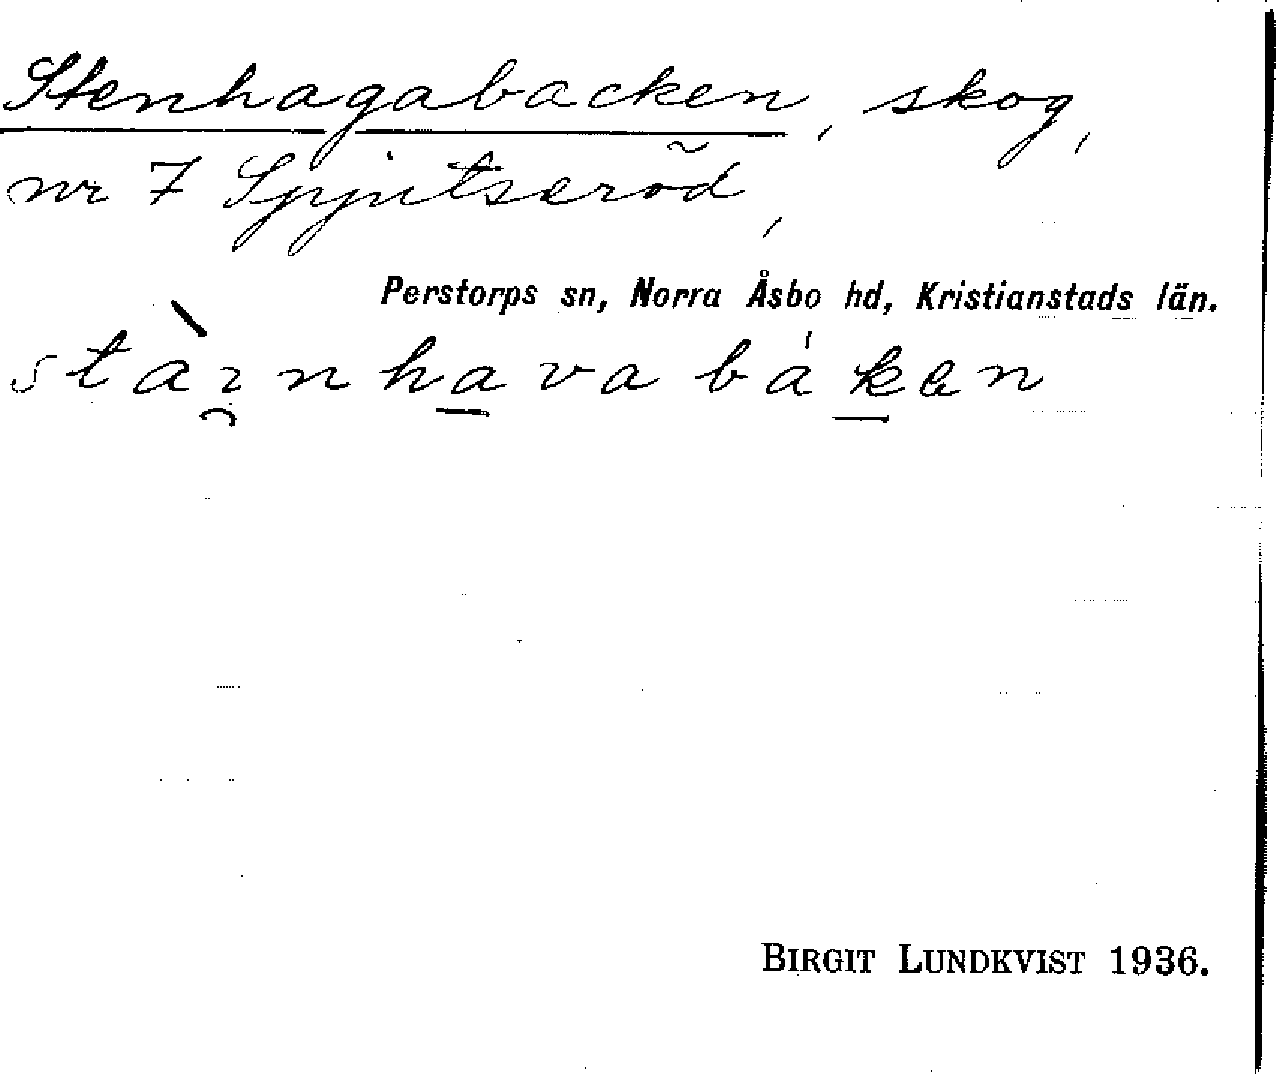 Stenhagabacken, skog,
nr 7 Spjutseröd,
Perstorps sn, Norra Åsbo hd, Kristianstads län.
stàɪnhavabákən
BIRGIT LUNDKVIST 1936.